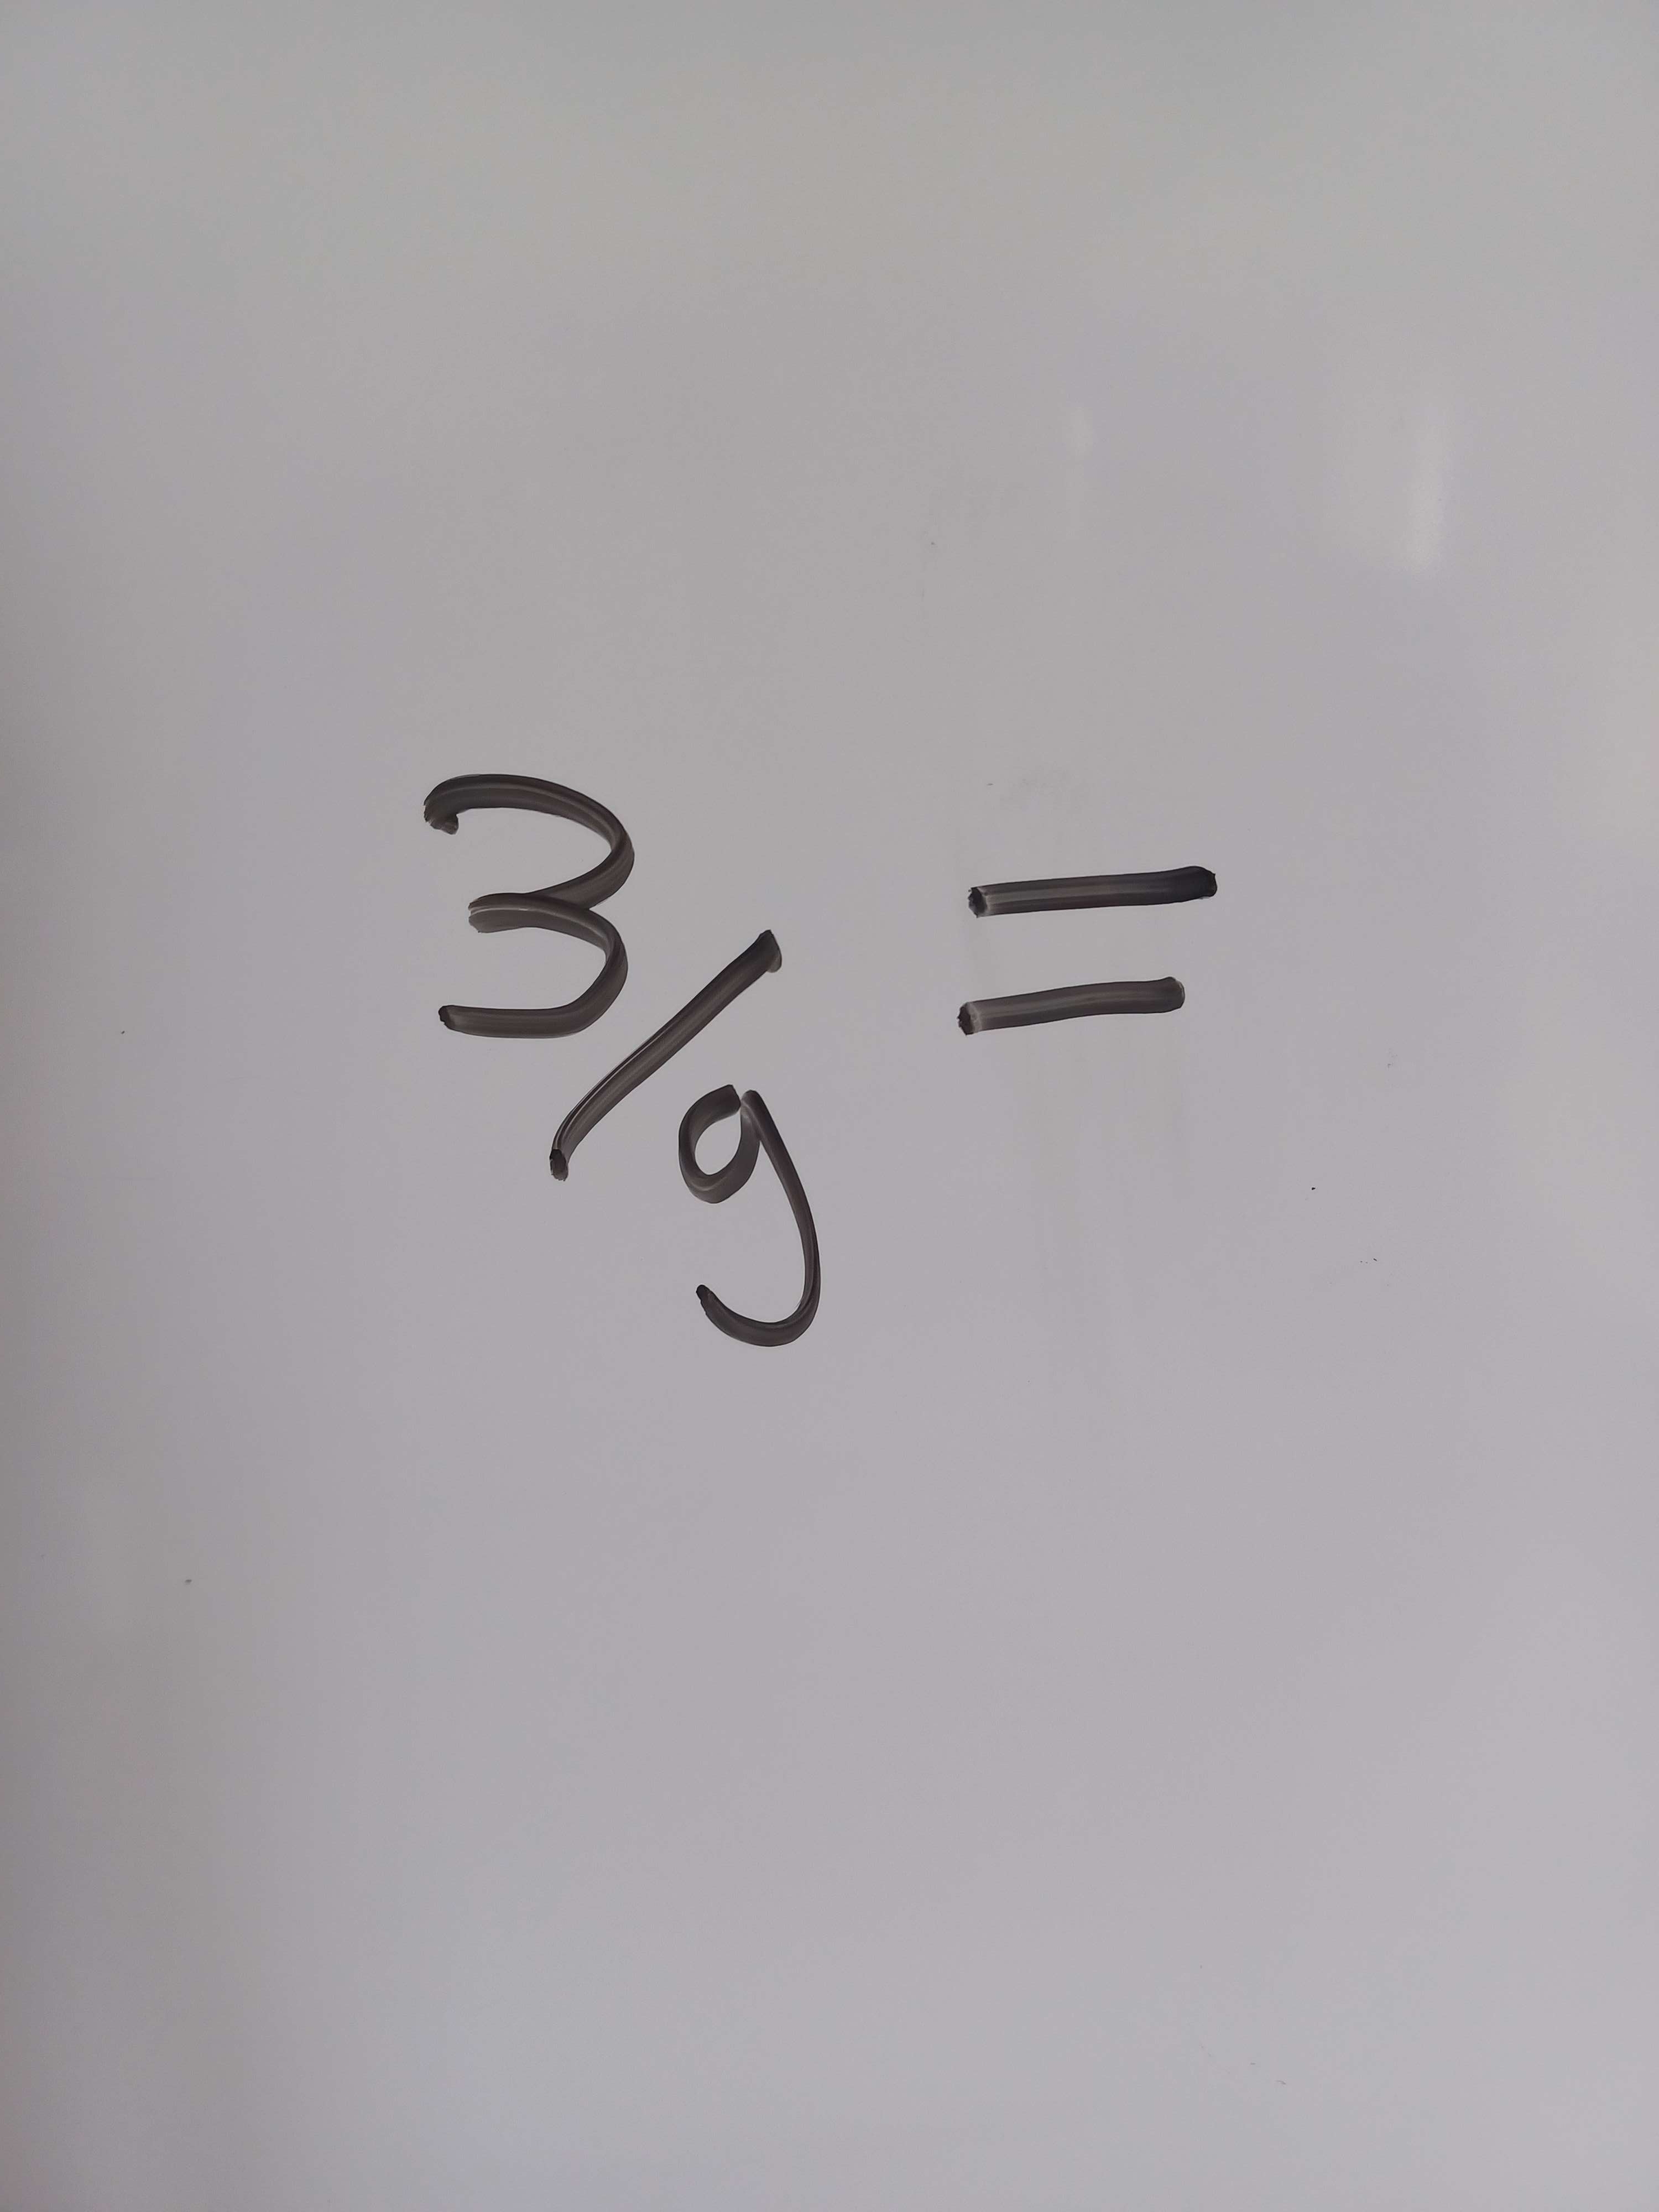 3/9 =